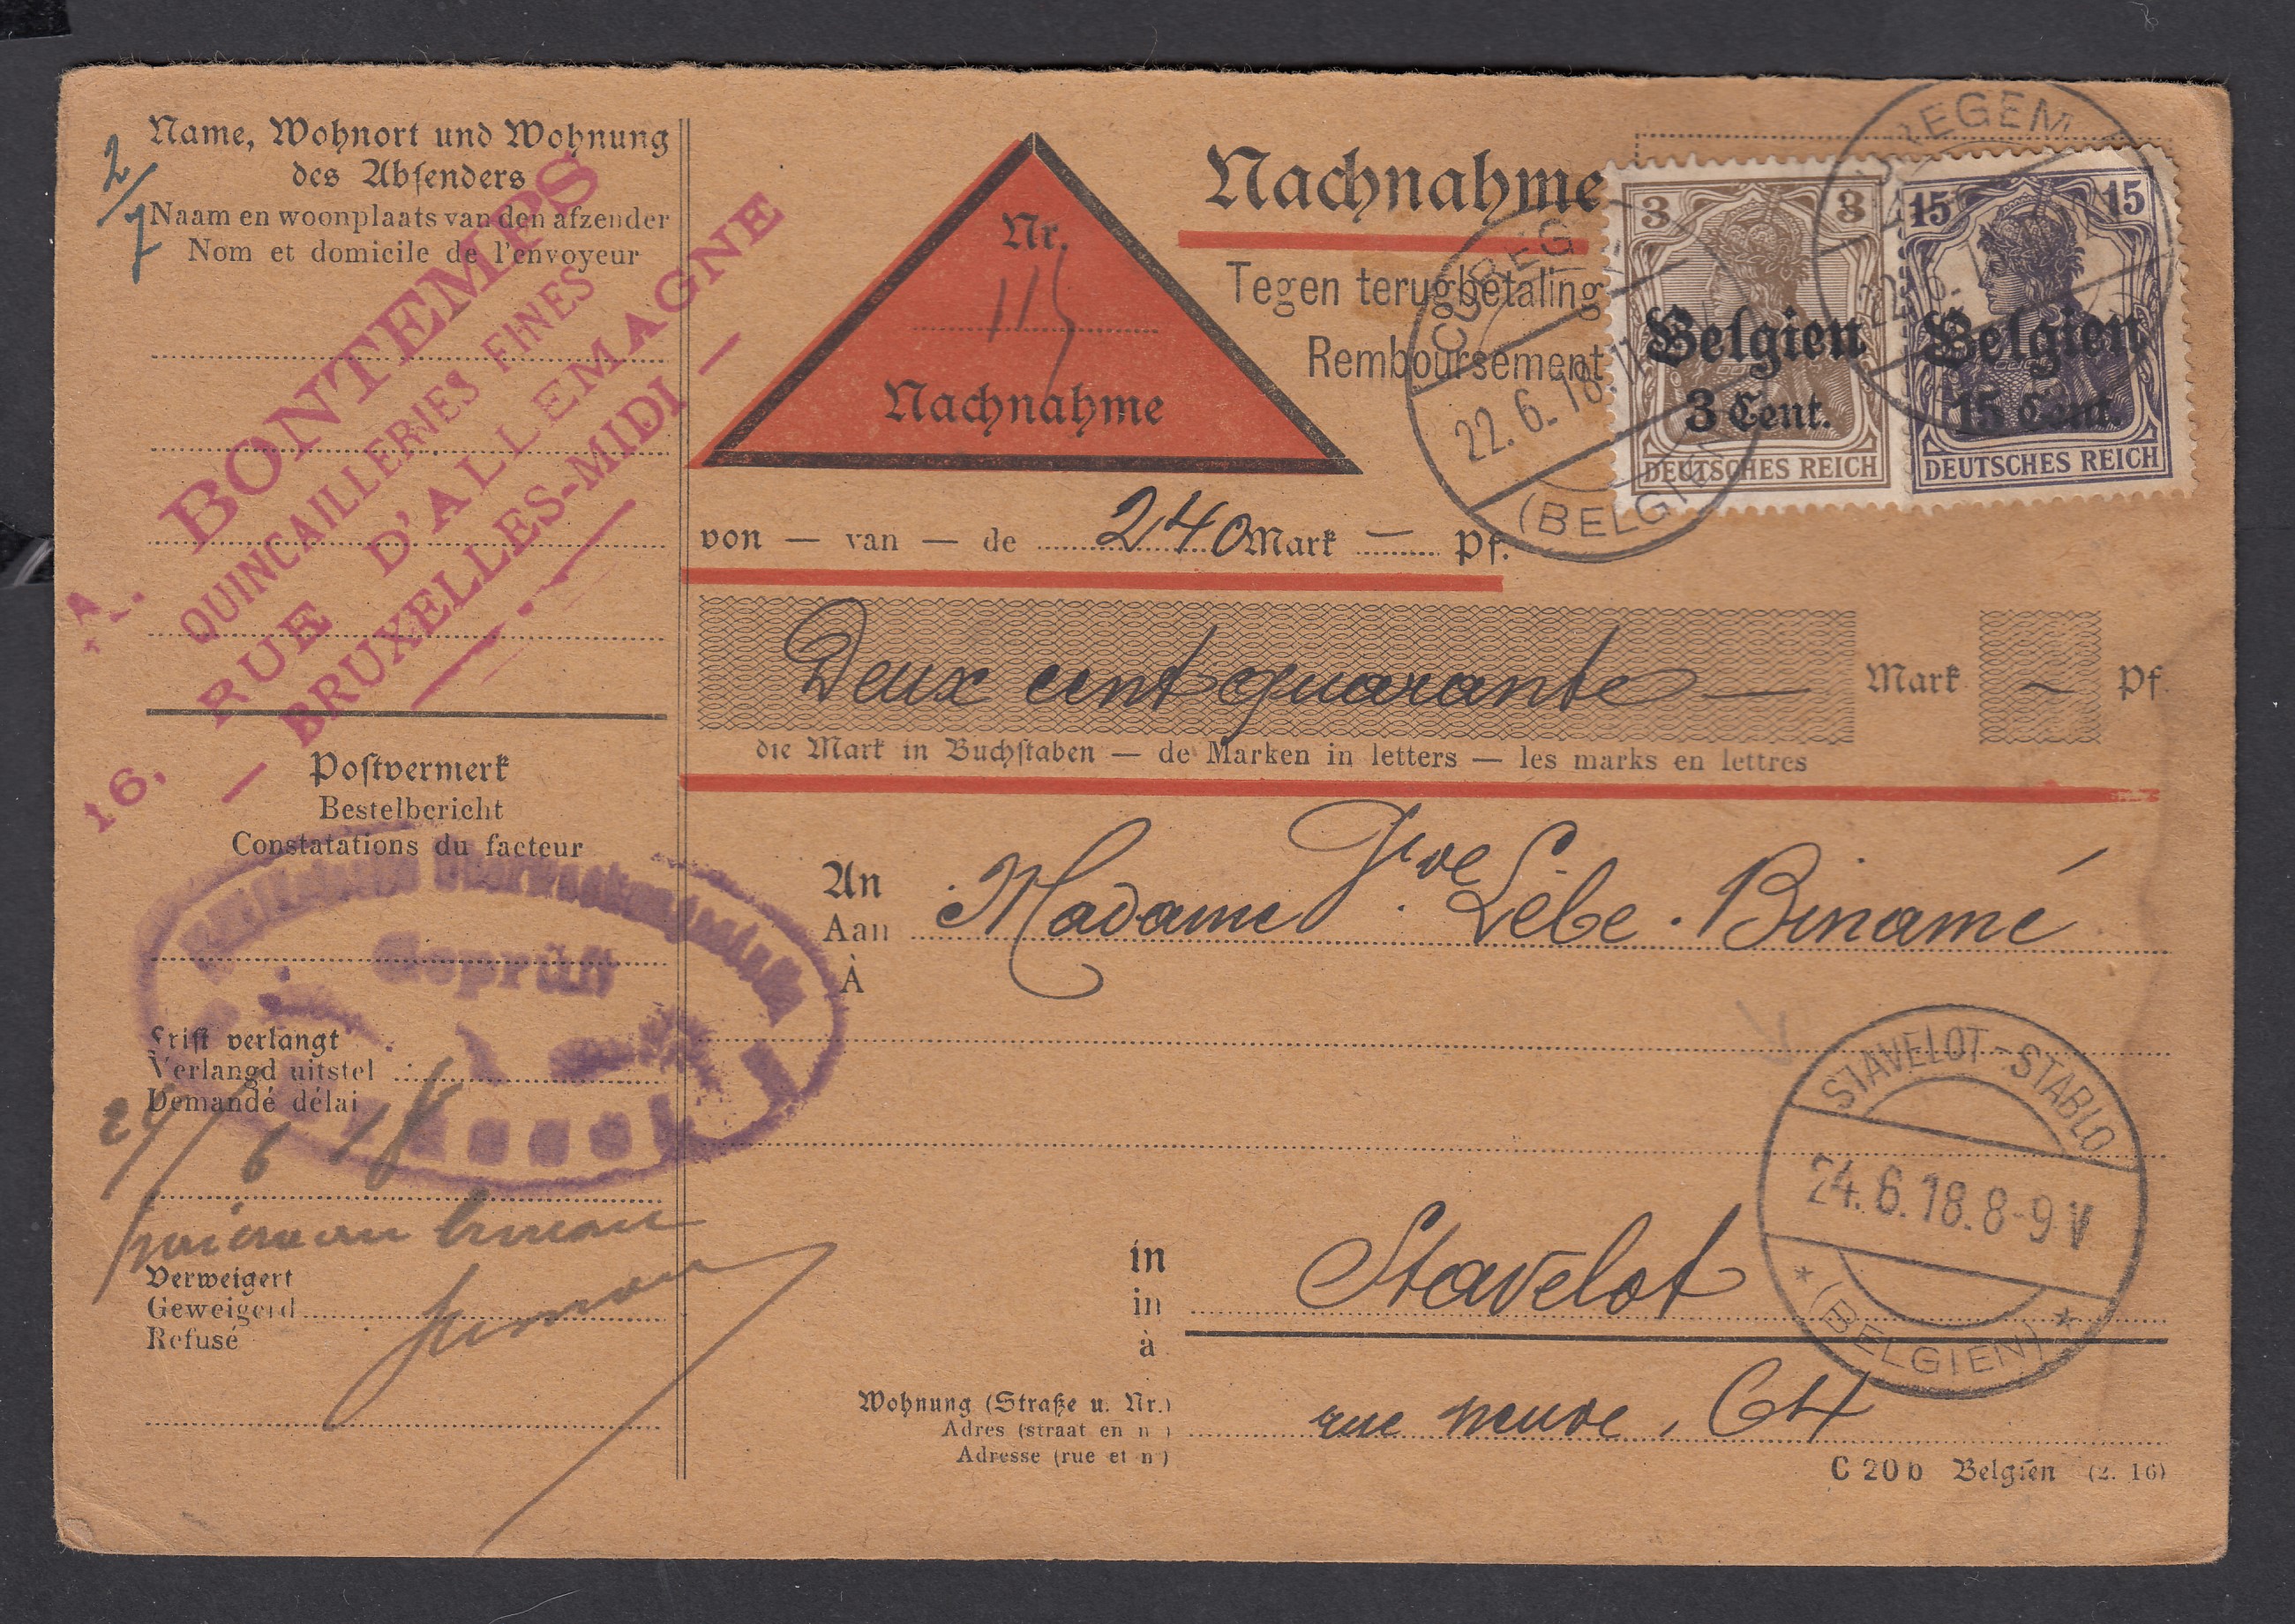 Name, Wohnort und Wohnung
des Absenders
Naam en woonplaats van den afzender
Nom et domicile de l'envoyeur
2/7
A. BONTEMPS
QUINCAILLERIES FINES
16, RUE D'ALLEMAGNE
— BRUXELLES-MIDI —
Postvermerk
Bestelbericht
Constatations du facteur
Militärische Überwachungsstelle
Geprüft
Frist verlangt
Verlangd uitstel
Demandé délai
24/6 18
Verweigert
Geweigerd
Refusé
Nr.
115
Nachnahme
Nachnahme
Tegen terugbetaling
Remboursement
3 3
Belgien
3 Cent.
DEUTSCHES REICH
15 15
Belgien
15 Cent.
DEUTSCHES REICH
CUREGEM
22.6.18.
(BELGIEN)
CUREGEM
22.6.
von — van — de 240 Mark — Pf.
Deux cent quarante — Mark ~ Pf.
die Mark in Buchstaben — de Marken in letters — les marks en lettres
An
Aan
À
Madame Vve Lébe. Binamé
STAVELOT - STABLO
24.6.18.8-9V
* (BELGIEN) *
in
in
à
Stavelot
Wohnung (Straße u. Nr.)
Adres (straat en n )
Adresse (rue et n )
rue neuve, 64
C 20 b Belgien (2. 16)